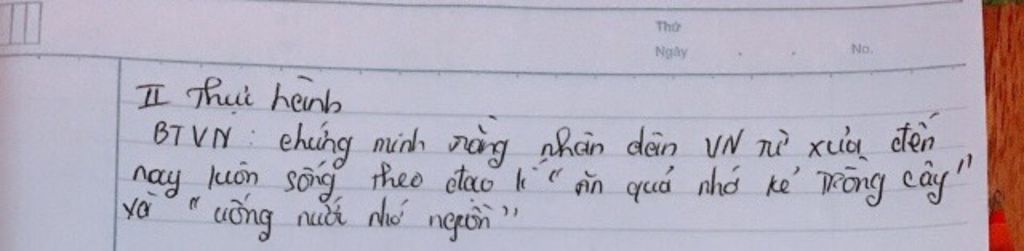 Thứ
Ngày . . No.
II Thực hành
BTVN : chứng minh rằng nhân dân VN từ xưa đến
nay luôn sống theo đạo lí " ăn quả nhớ kẻ trồng cây"
và " uống nước nhớ nguồn "